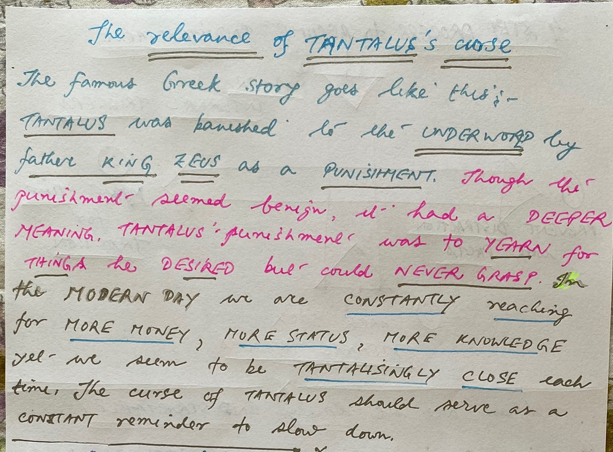 The relevance of TANTALUS's curse
The famous Greek story goes like this:-
TANTALUS was banished to the UNDERWORLD by
father KING ZEUS as a PUNISHMENT. Though the
punishment seemed benign, it had a DEEPER
MEANING. TANTALUS' punishment was to YEARN for
THINGS he DESIRED but could NEVER GRASP. In
the MODERN DAY we are CONSTANTLY reaching
for MORE MONEY, MORE STATUS, MORE KNOWLEDGE
yet we seem to be TANTALISINGLY CLOSE each
time. The curse of TANTALUS should serve as a
CONSTANT reminder to slow down.